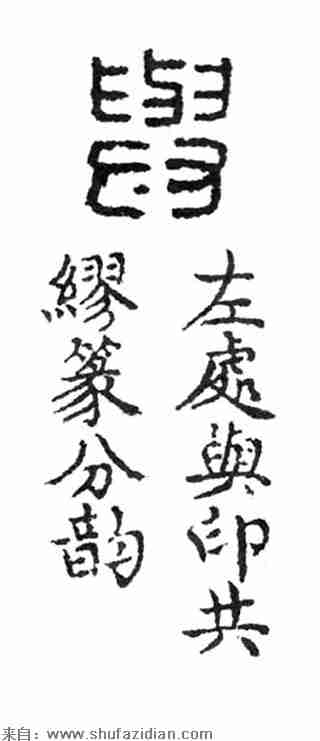 與
左處與印共
繆篆分韵
来自：www.shufazidian.com